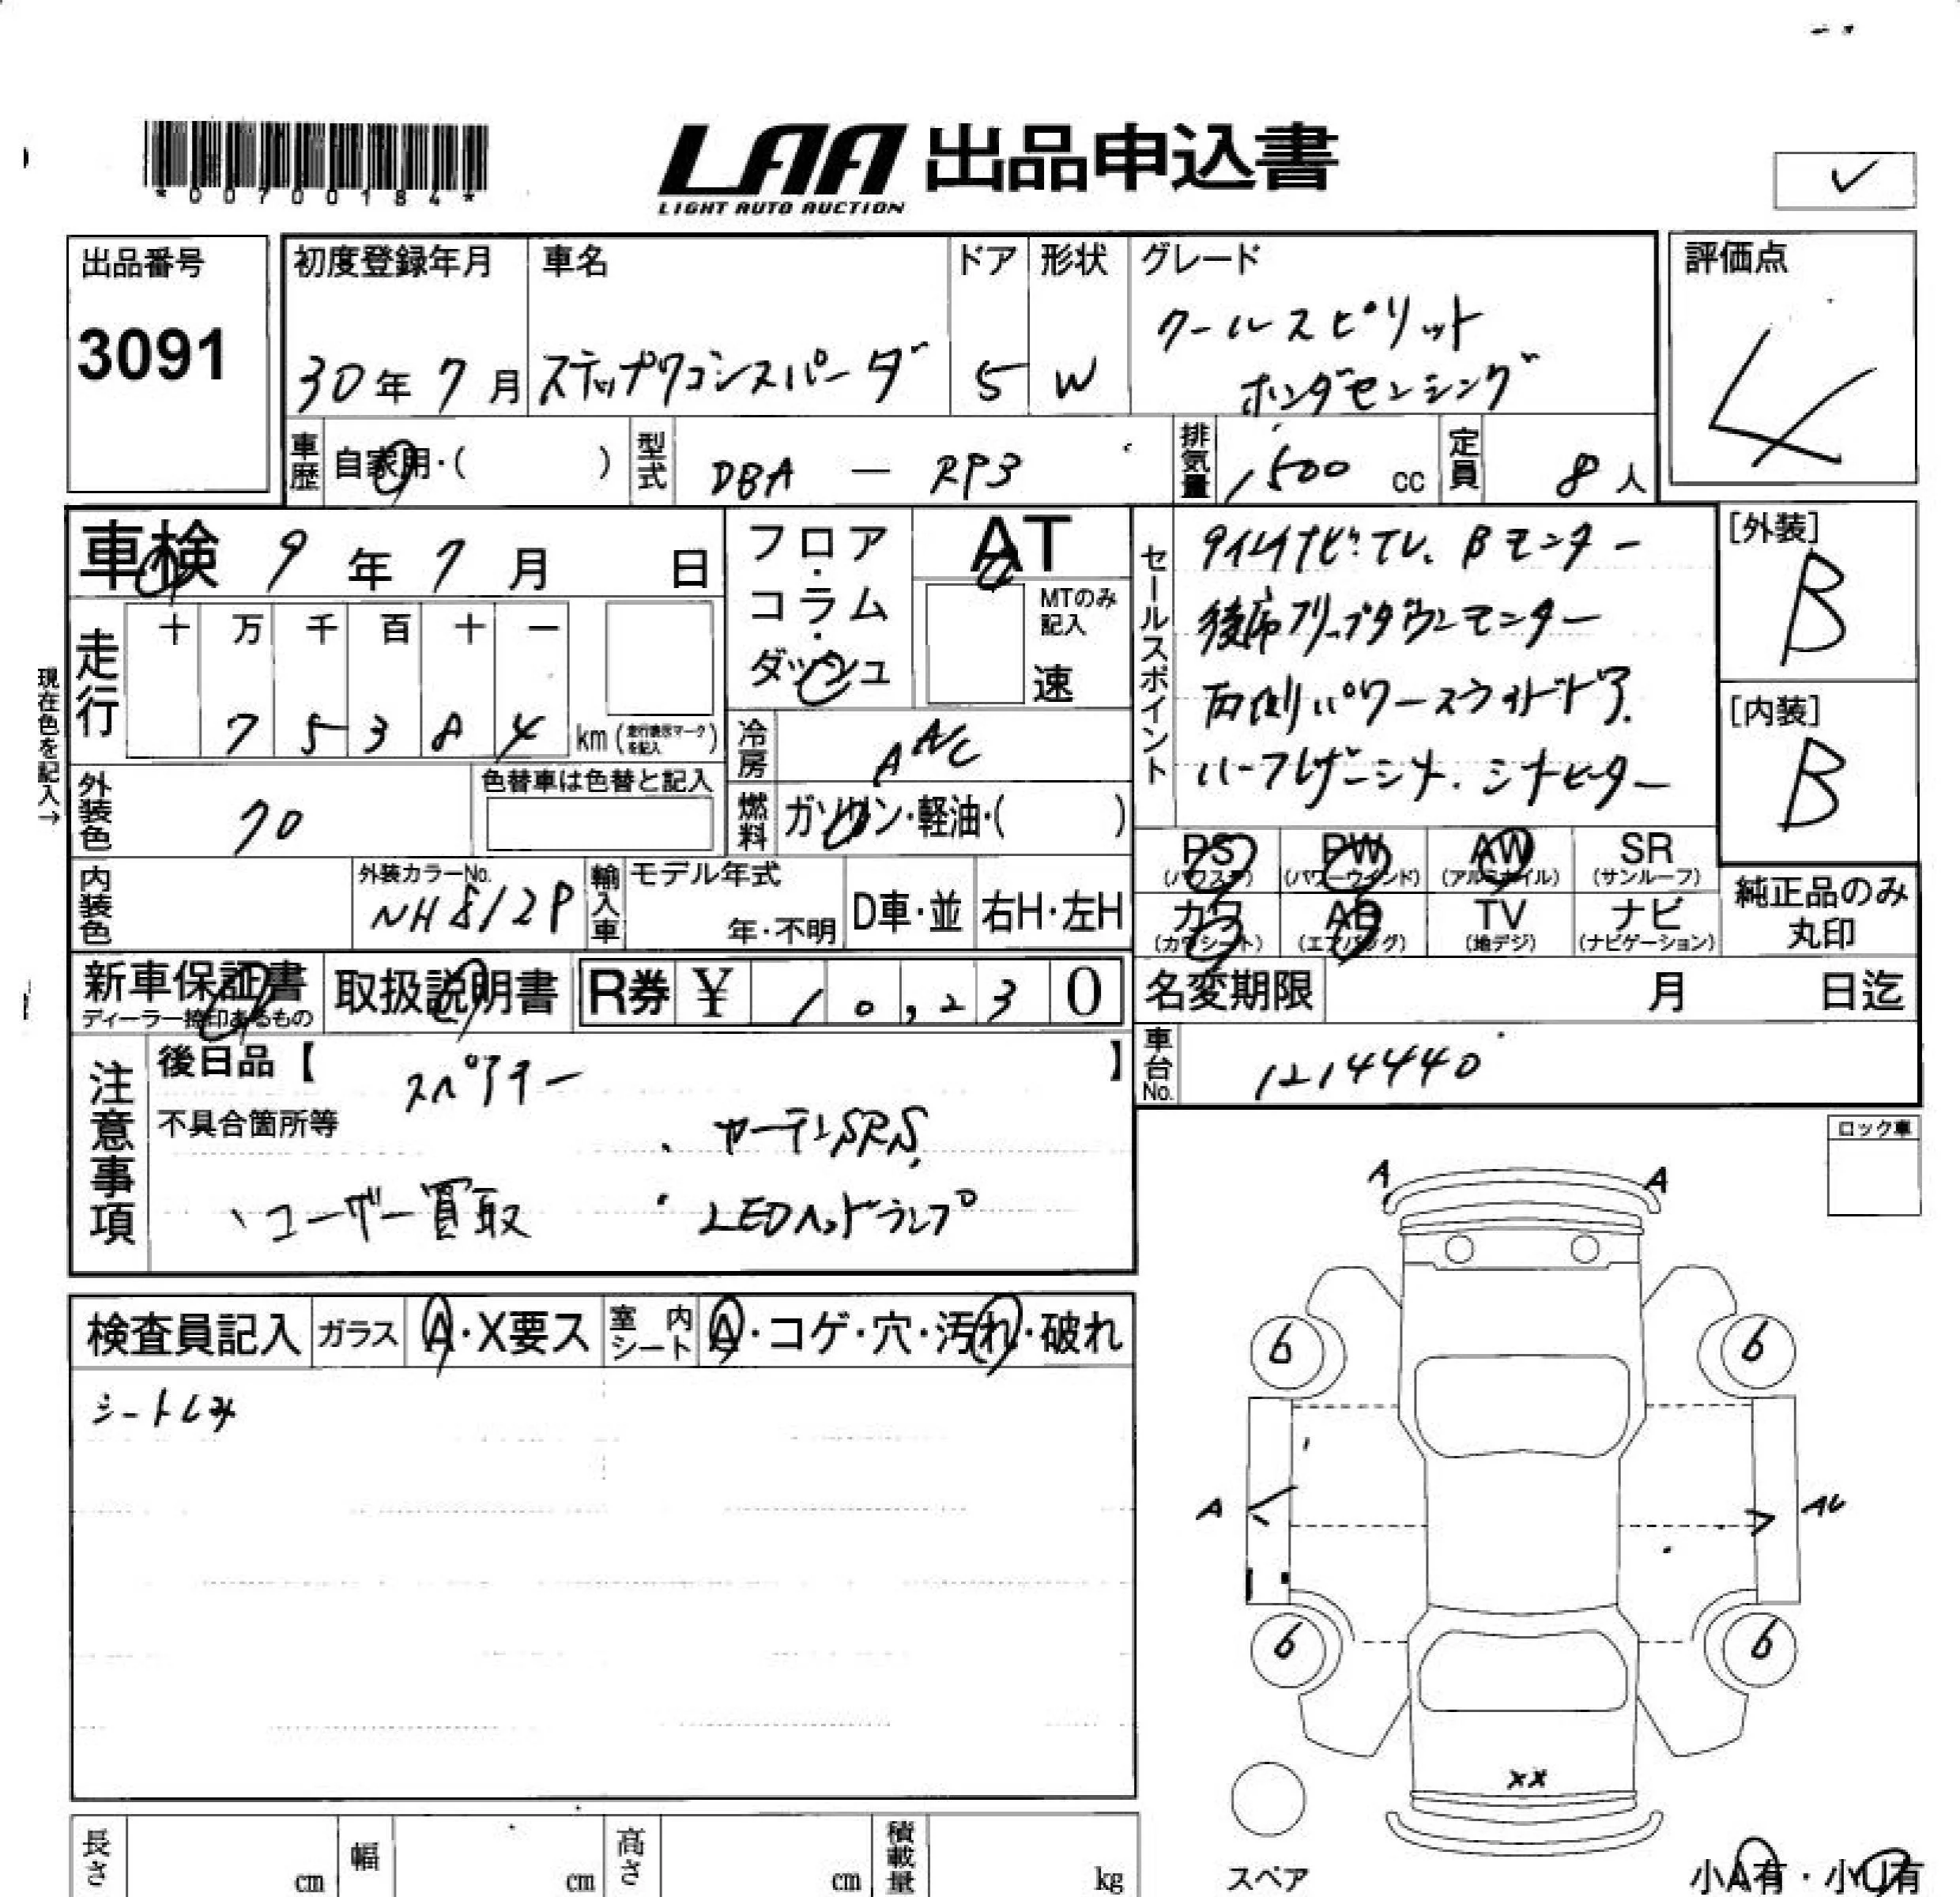 *00700184*
LAA 出品申込書
LIGHT AUTO AUCTION
✓
出品番号
3091
初度登録年月 車名 ドア 形状 グレード
30年7月 ステップワゴンスパーダ 5 W クールスピリット
ホンダセンシング
評価点
4
車歴 自家用・( ) 型式 DBA — RP3 排気量 1500 cc 定員 8人
車検 9年7月 日
フロア・コラム・ダッシュ
AT
MTのみ記入
速
セールスポイント
後席フリップダウンモンター
両側パワースライドドア.
ハーフレザーシート.シートヒーター
[外装]
B
[内装]
B
現在色を記入→
走行 十 万 千 百 十 一
7 5 3 8 4 km (走行表示マークを記入)
冷房 AA/C
外装色 クロ
色替車は色替と記入
燃料 ガソリン・軽油・( )
PS (パワステ) PW (パワーウインド) AW (アルミホイル) SR (サンルーフ)
カワ (カワシート) AB (エアバッグ) TV (地デジ) ナビ (ナビゲーション)
純正品のみ丸印
内装色 外装カラーNo. NH812P
輸入車 モデル年式 年・不明 D車・並 右H・左H
新車保証書
ディーラー捺印あるもの
取扱説明書 R券 ¥ 10,230
名変期限 月 日迄
車台No. 1214440
注意事項
後日品【 スペアキー 】
不具合箇所等
・カーテンSRS.
、ユーザー買取 ・LEDヘッドランプ
ロック車
検査員記入 ガラス A・X要ス 室内シート A・コゲ・穴・汚れ・破れ
シートしみ
A A
6 6
A AU
6 6
XX
スペア
小A有・小U有
長さ cm 幅 cm 高さ cm 積載量 kg